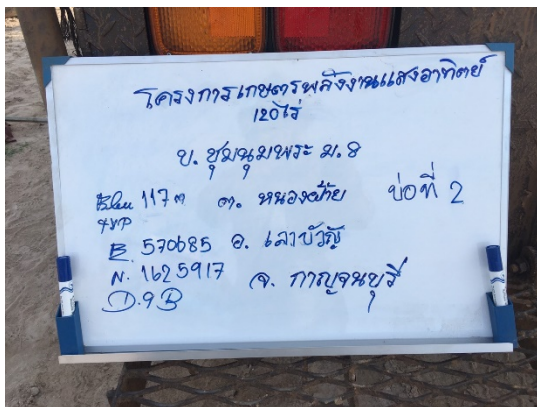 โครงการเกษตรพลังงานแสงอาทิตย์
120ไร่
บ. ชุมนุมพระ ม. 8
117 ต. หนองฝ้าย บ่อที่ 2
E. 570685 อ. เลาขวัญ
N. 1625917 จ. กาญจนบุรี
D.9B